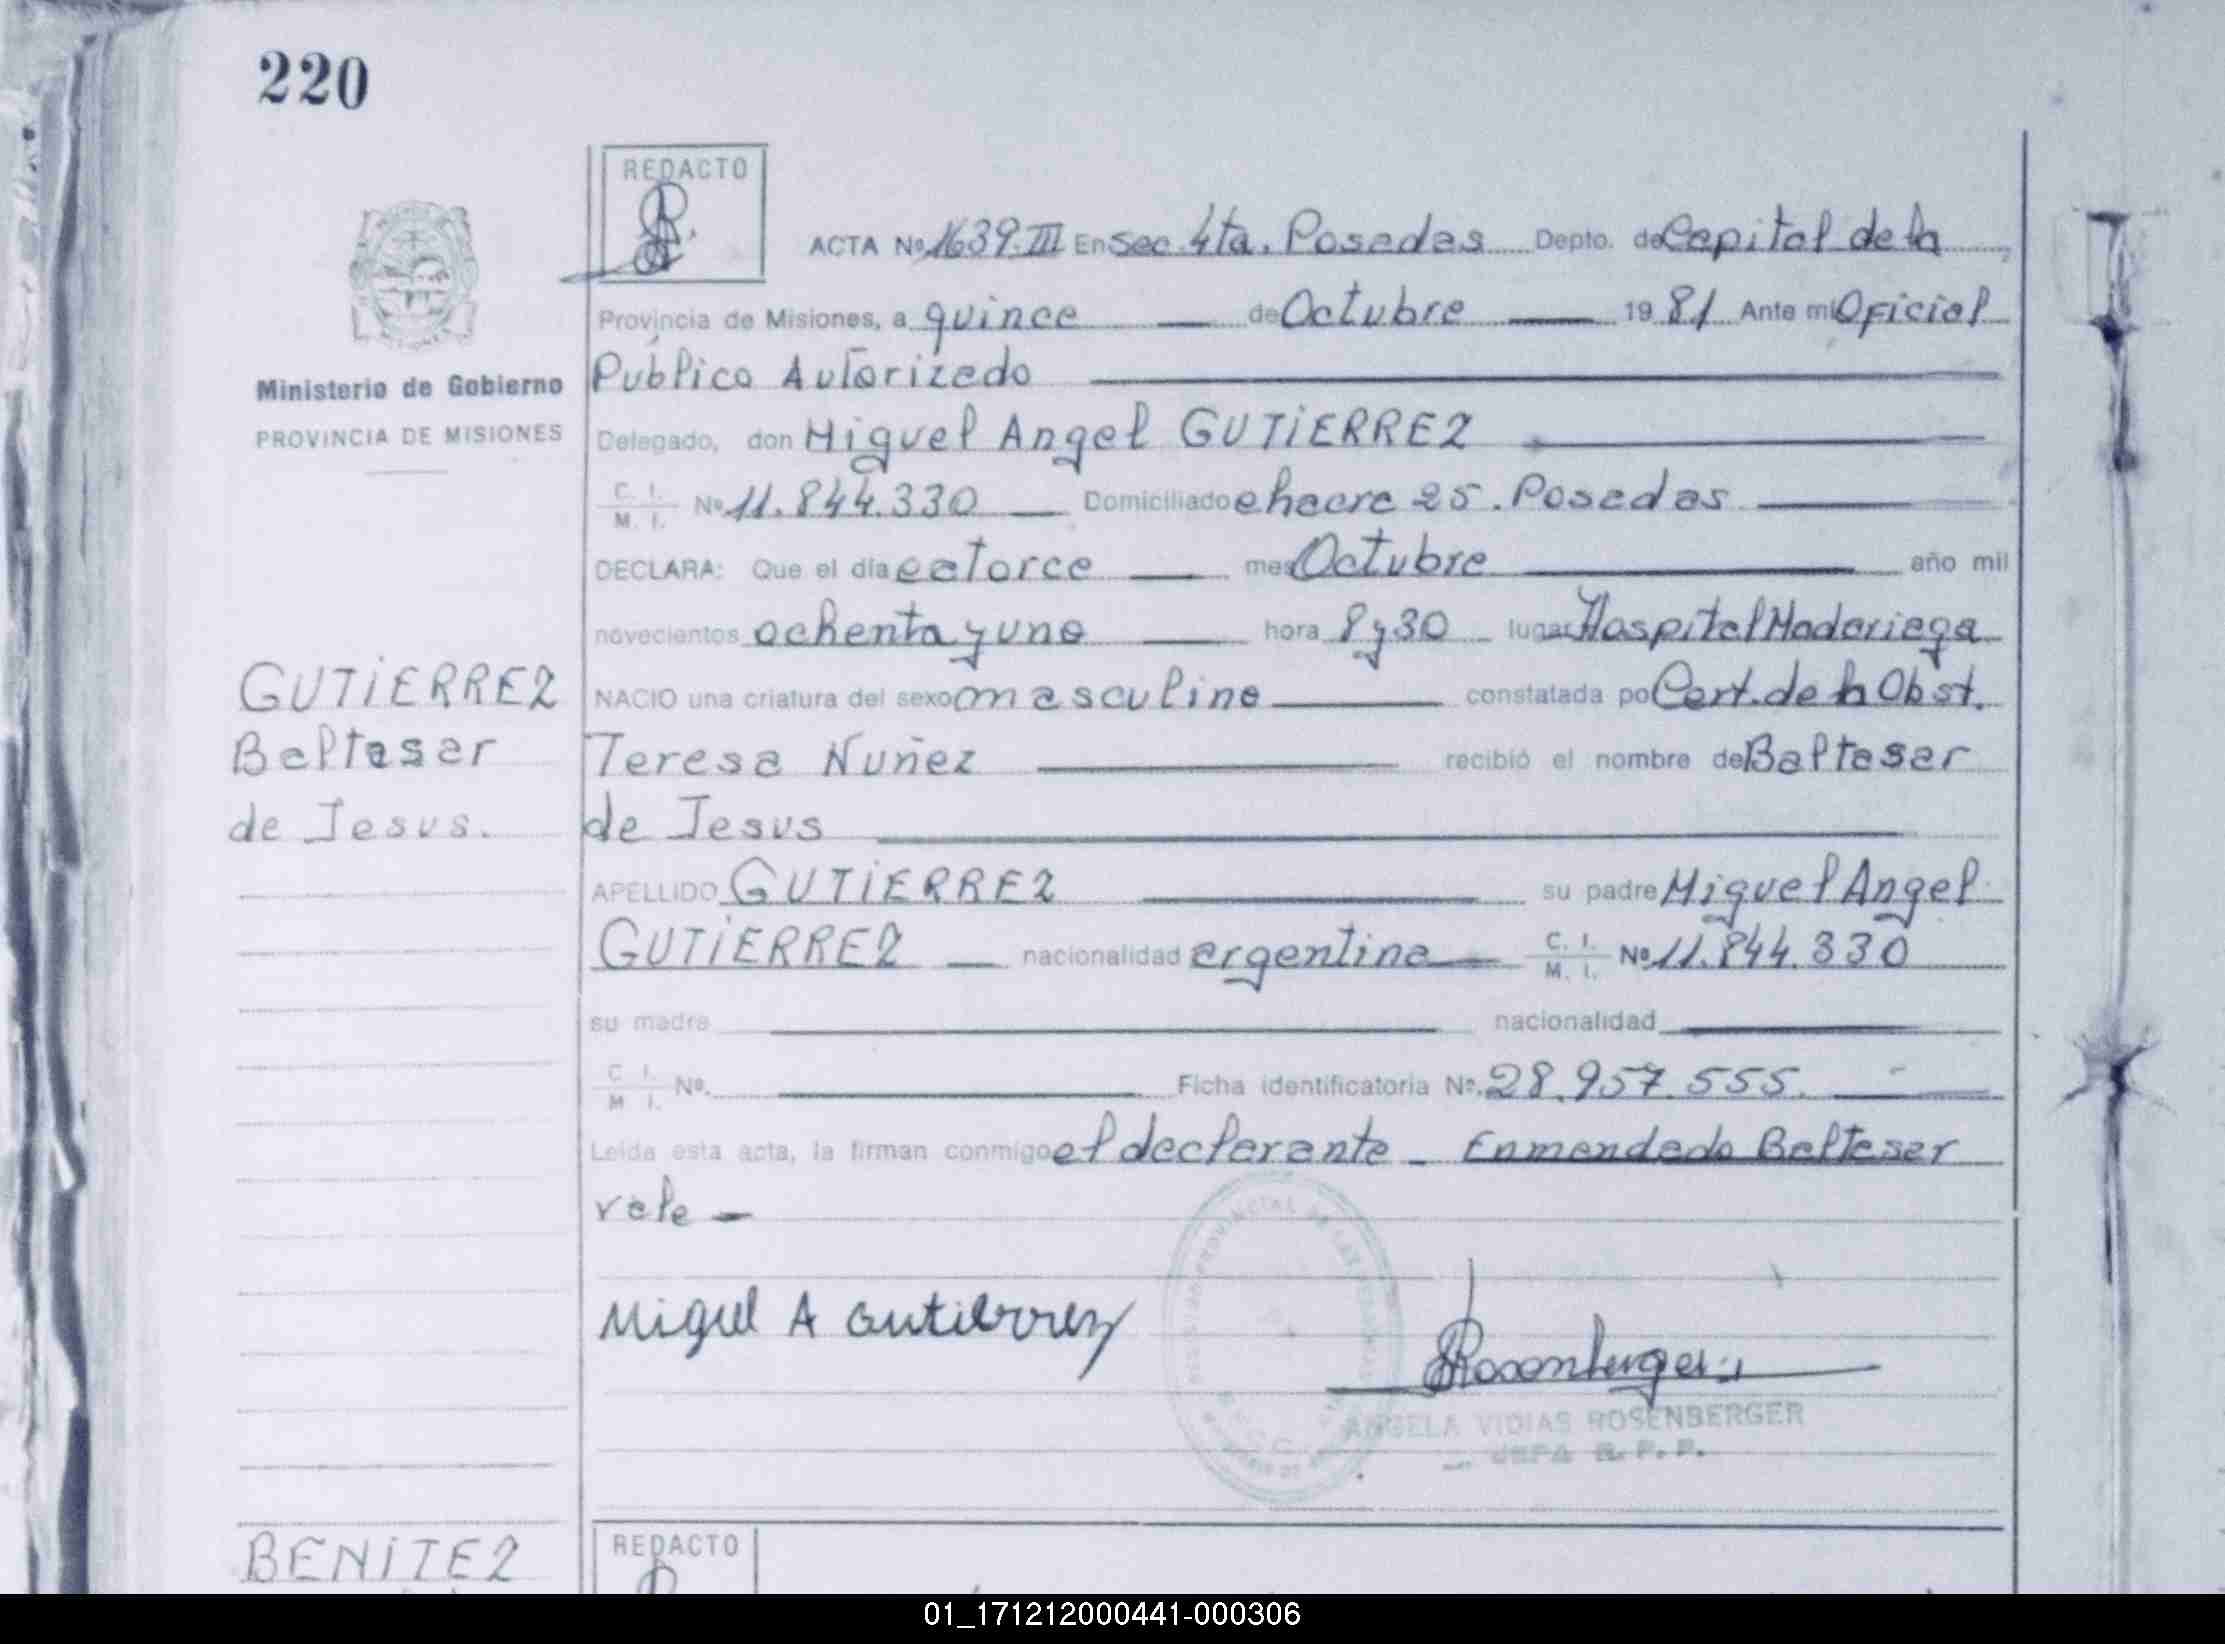 220
REDACTO
ACTA Nº 1639.III En Sec 4ta. Posadas Depto. de Capital de la
Provincia de Misiones, a quince de Octubre 1981 Ante mi Oficial
Ministerio de Gobierno
PROVINCIA DE MISIONES
Público Autorizado
Delegado, don Miguel Angel GUTIERREZ
C. I. M. I. Nº 11.844.330 Domiciliado chacra 25. Posadas
DECLARA: Que el día catorce mes Octubre año mil
novecientos ochenta y uno hora 8 y 30 lugar Hospital Madariaga
GUTIERREZ
Baltasar
de Jesus.
NACIO una criatura del sexo masculino constatada po Cert. de la Obst.
Teresa Nuñez recibió el nombre de Baltasar
de Jesus
APELLIDO GUTIERREZ su padre Miguel Angel
GUTIERREZ nacionalidad argentina C. I. M. I. Nº 11.844.330
su madre nacionalidad
C. I. M. I. Nº. Ficha identificatoria Nº. 28.957.555.
Leída esta acta, la firman conmigo el declarante - Enmendado Baltasar
vale -
Miguel A Gutierrez
Rosenberger
ANGELA VIDIAS ROSENBERGER
JEFA R. P. P.
BENITEZ
REDACTO
01_171212000441-000306